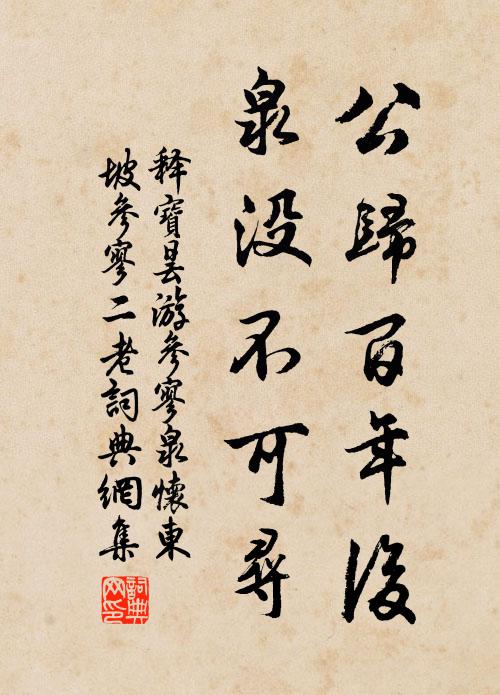 公歸百年後
泉没不可尋
释寶曇游參寥泉懷東
坡參寥二老詞典網集
詞典网印